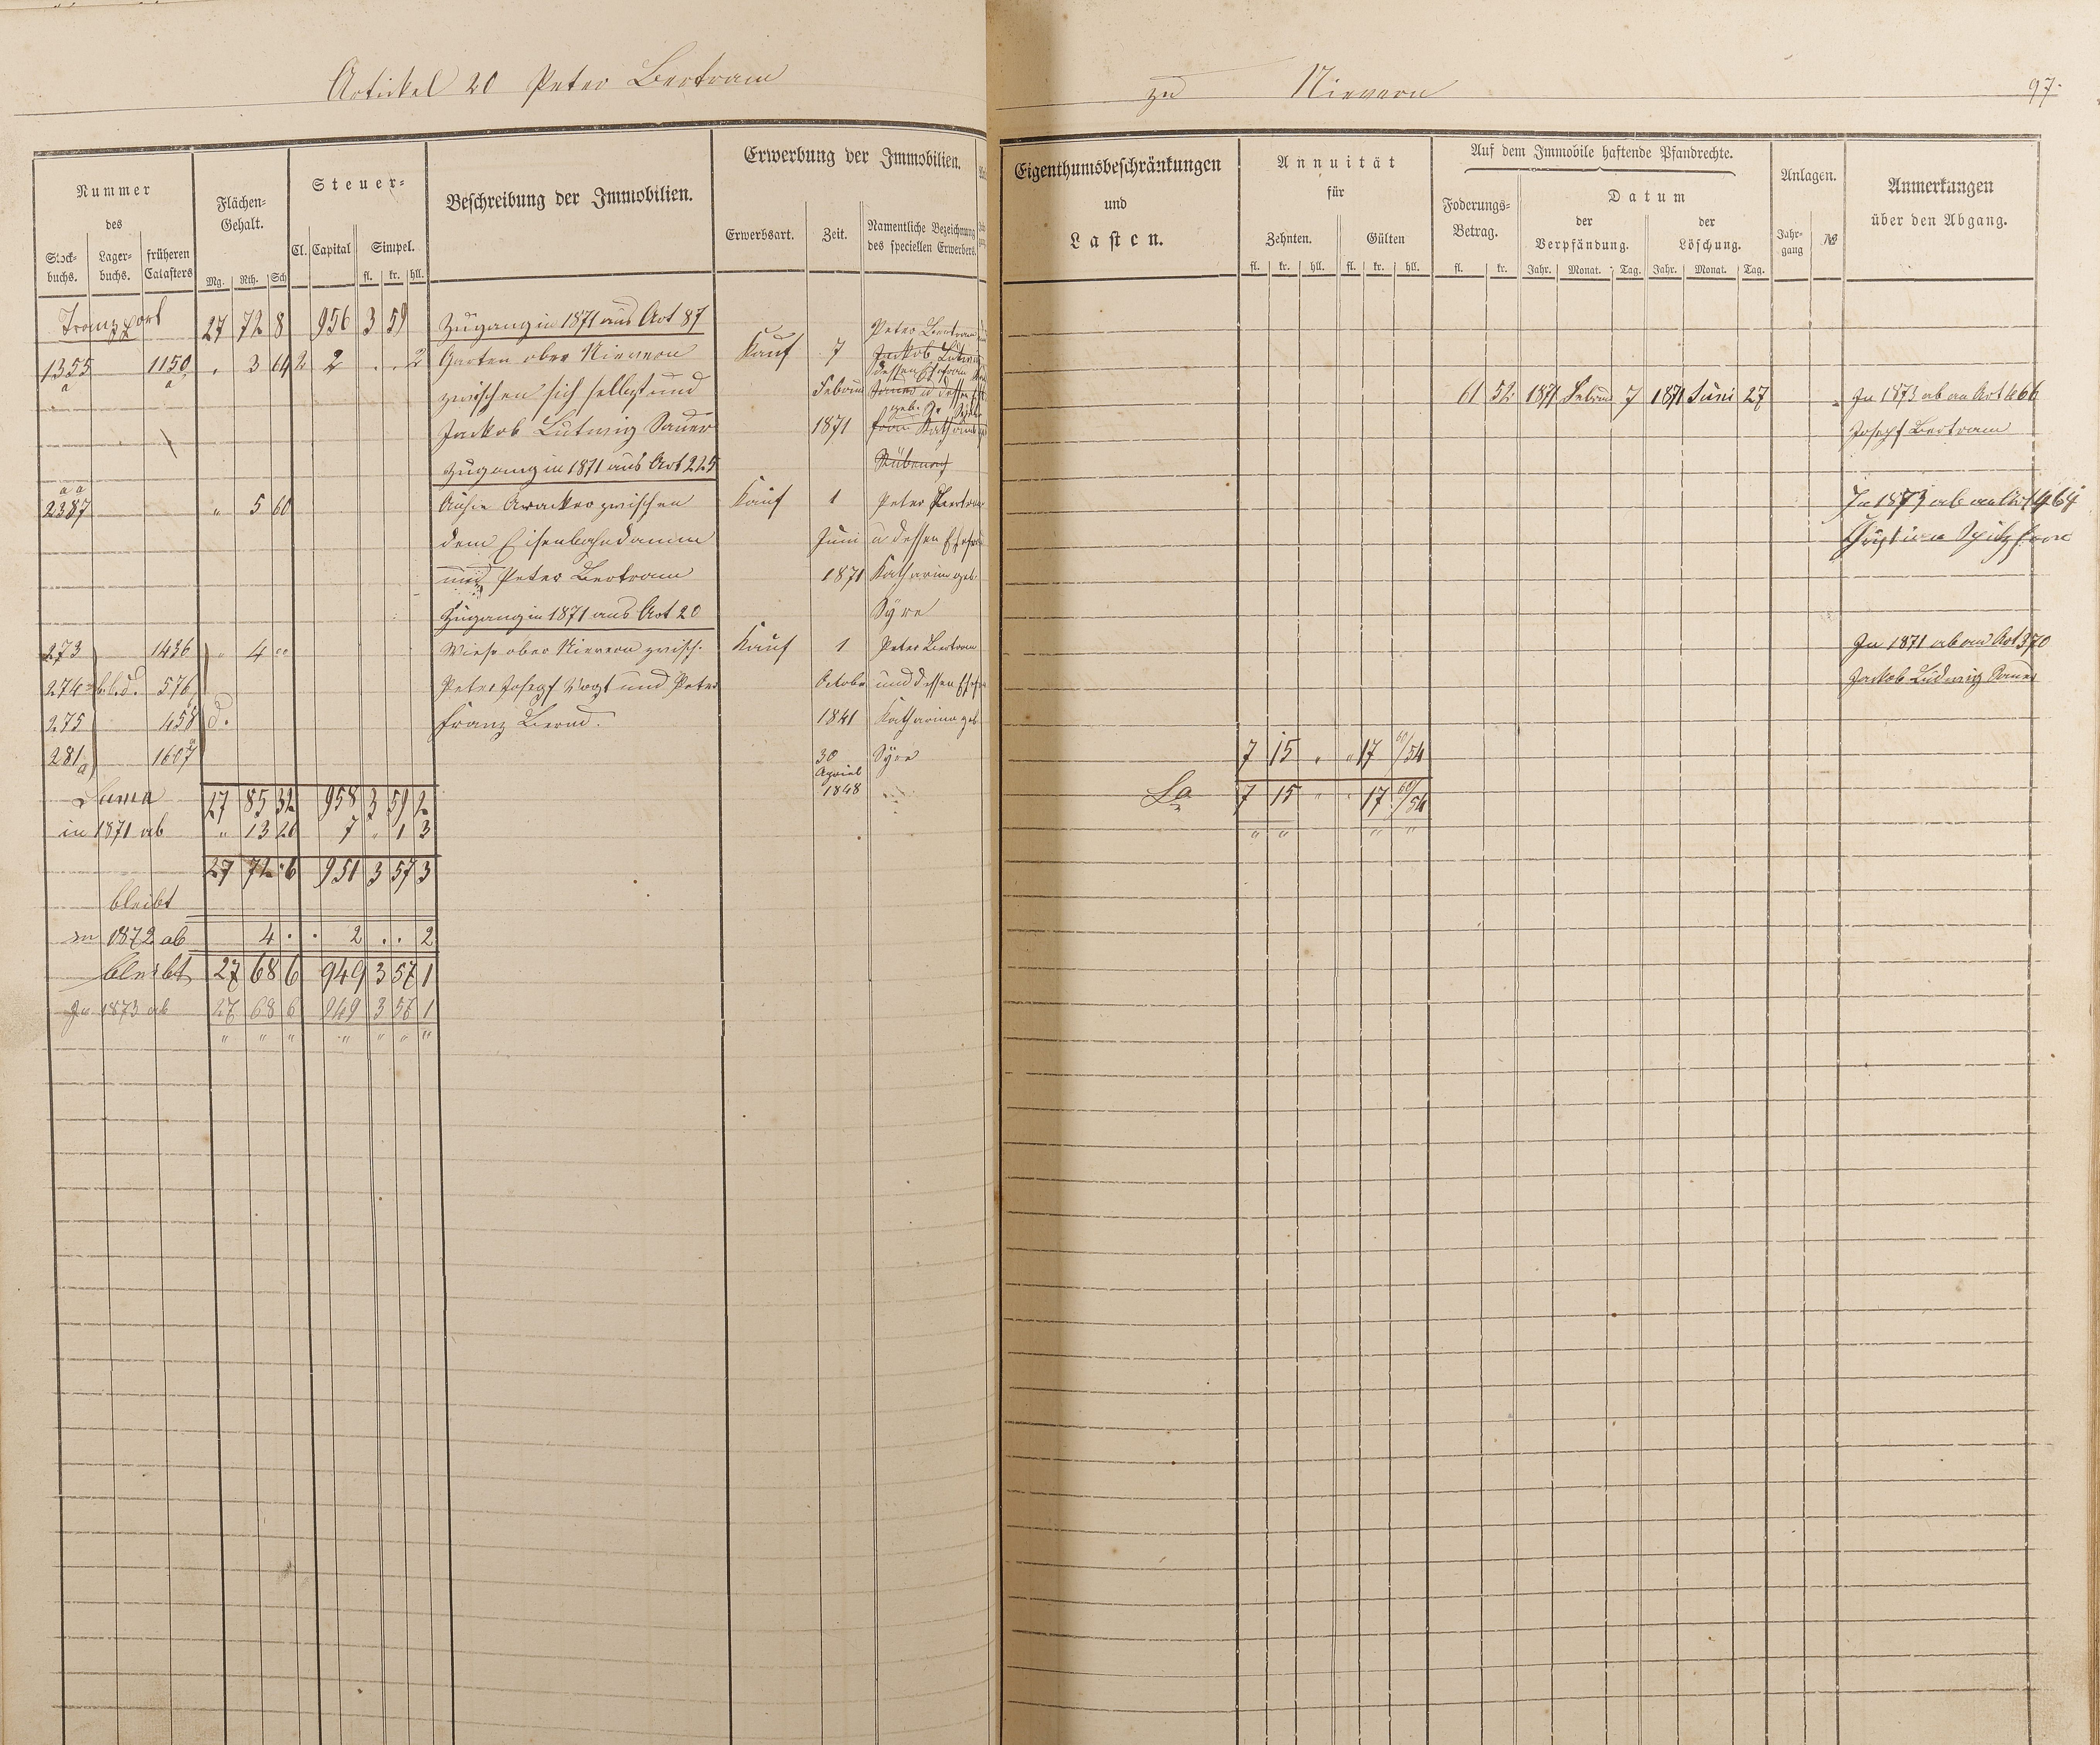 Artickel 20 Peter Bertram
zu Nievern
97.
Nummer
des
Stock-
buchs.
Lager-
buchs.
früheren
Catasters
Flächen-
Gehalt.
Mg. Rth. Sch
Steuer-
Cl. Capital Simpel.
fl. kr. hll.
Beschreibung der Immobilien.
Erwerbung der Immobilien.
Erwerbsart. Zeit. Namentliche Bezeichnung
des speciellen Erwerbers.
Eigenthumsbeschränkungen
und
Lasten.
Annuität
für
Zehnten. Gülten
fl. kr. hll. fl. kr. hll.
Auf dem Immobile haftende Pfandrechte.
Foderungs-
Betrag.
fl. kr.
Datum
der
Verpfändung.
Jahr. Monat. Tag.
der
Löschung.
Jahr. Monat. Tag.
Anlagen.
Jahr-
gang
№
Anmerkungen
über den Abgang.
Transport 27 72 8 956 3 59 Zugang in 1871 aus Art 87 Peter Bertram
1355 a 1150 a " 3 64 2 2 . . 2 Garten ober Nievern Kauf 7 Jackob Ludwig
dessen Ehefrau
zwischen sich selbst und Februar
61 52 1871 Februar 7 1871 Juni 27 In 1873 ab an Art 466
geb.
Jackob Ludwig Sauer 1871 frau Katharina
Joseph Bertram
Zugang in 1871 aus Art 225
aa
2387 " 5 60 Acker zwischen Kauf 1 Peter Bertram
In 1873 ab an Art 464
dem Eisenbahndamm Juni u dessen Ehefrau
Christian
und Peter Bertram 1871 Katharina geb.
Zugang in 1871 aus Art 20 Syre
273 1436 " 4 " Wiese ober Nievern zwisch. Kauf 1 Peter Bertram
In 1871 ab an Art 370
274 b.c.d. 576 Peter Joseph Vogt und Peter Octobr und dessen Ehefrau
Jackob Ludwig Sauer
275 458 d. Franz Bernd. 1841 Katharina geb.
281 a 1607 30 Syre
7 15 " " 17 60/54
April
1848
Suma 27 85 32 958 3 59 2
Sa 7 15 " " 17 60/54
in 1871 ab " 13 26 7 " 1 3
" " " "
27 72 6 951 3 57 3
bleibt
in 1872 ab 4 . . 2 . . 2
bleibt 27 68 6 949 3 57 1
In 1873 ab 27 68 6 949 3 57 1
" " " " " " "